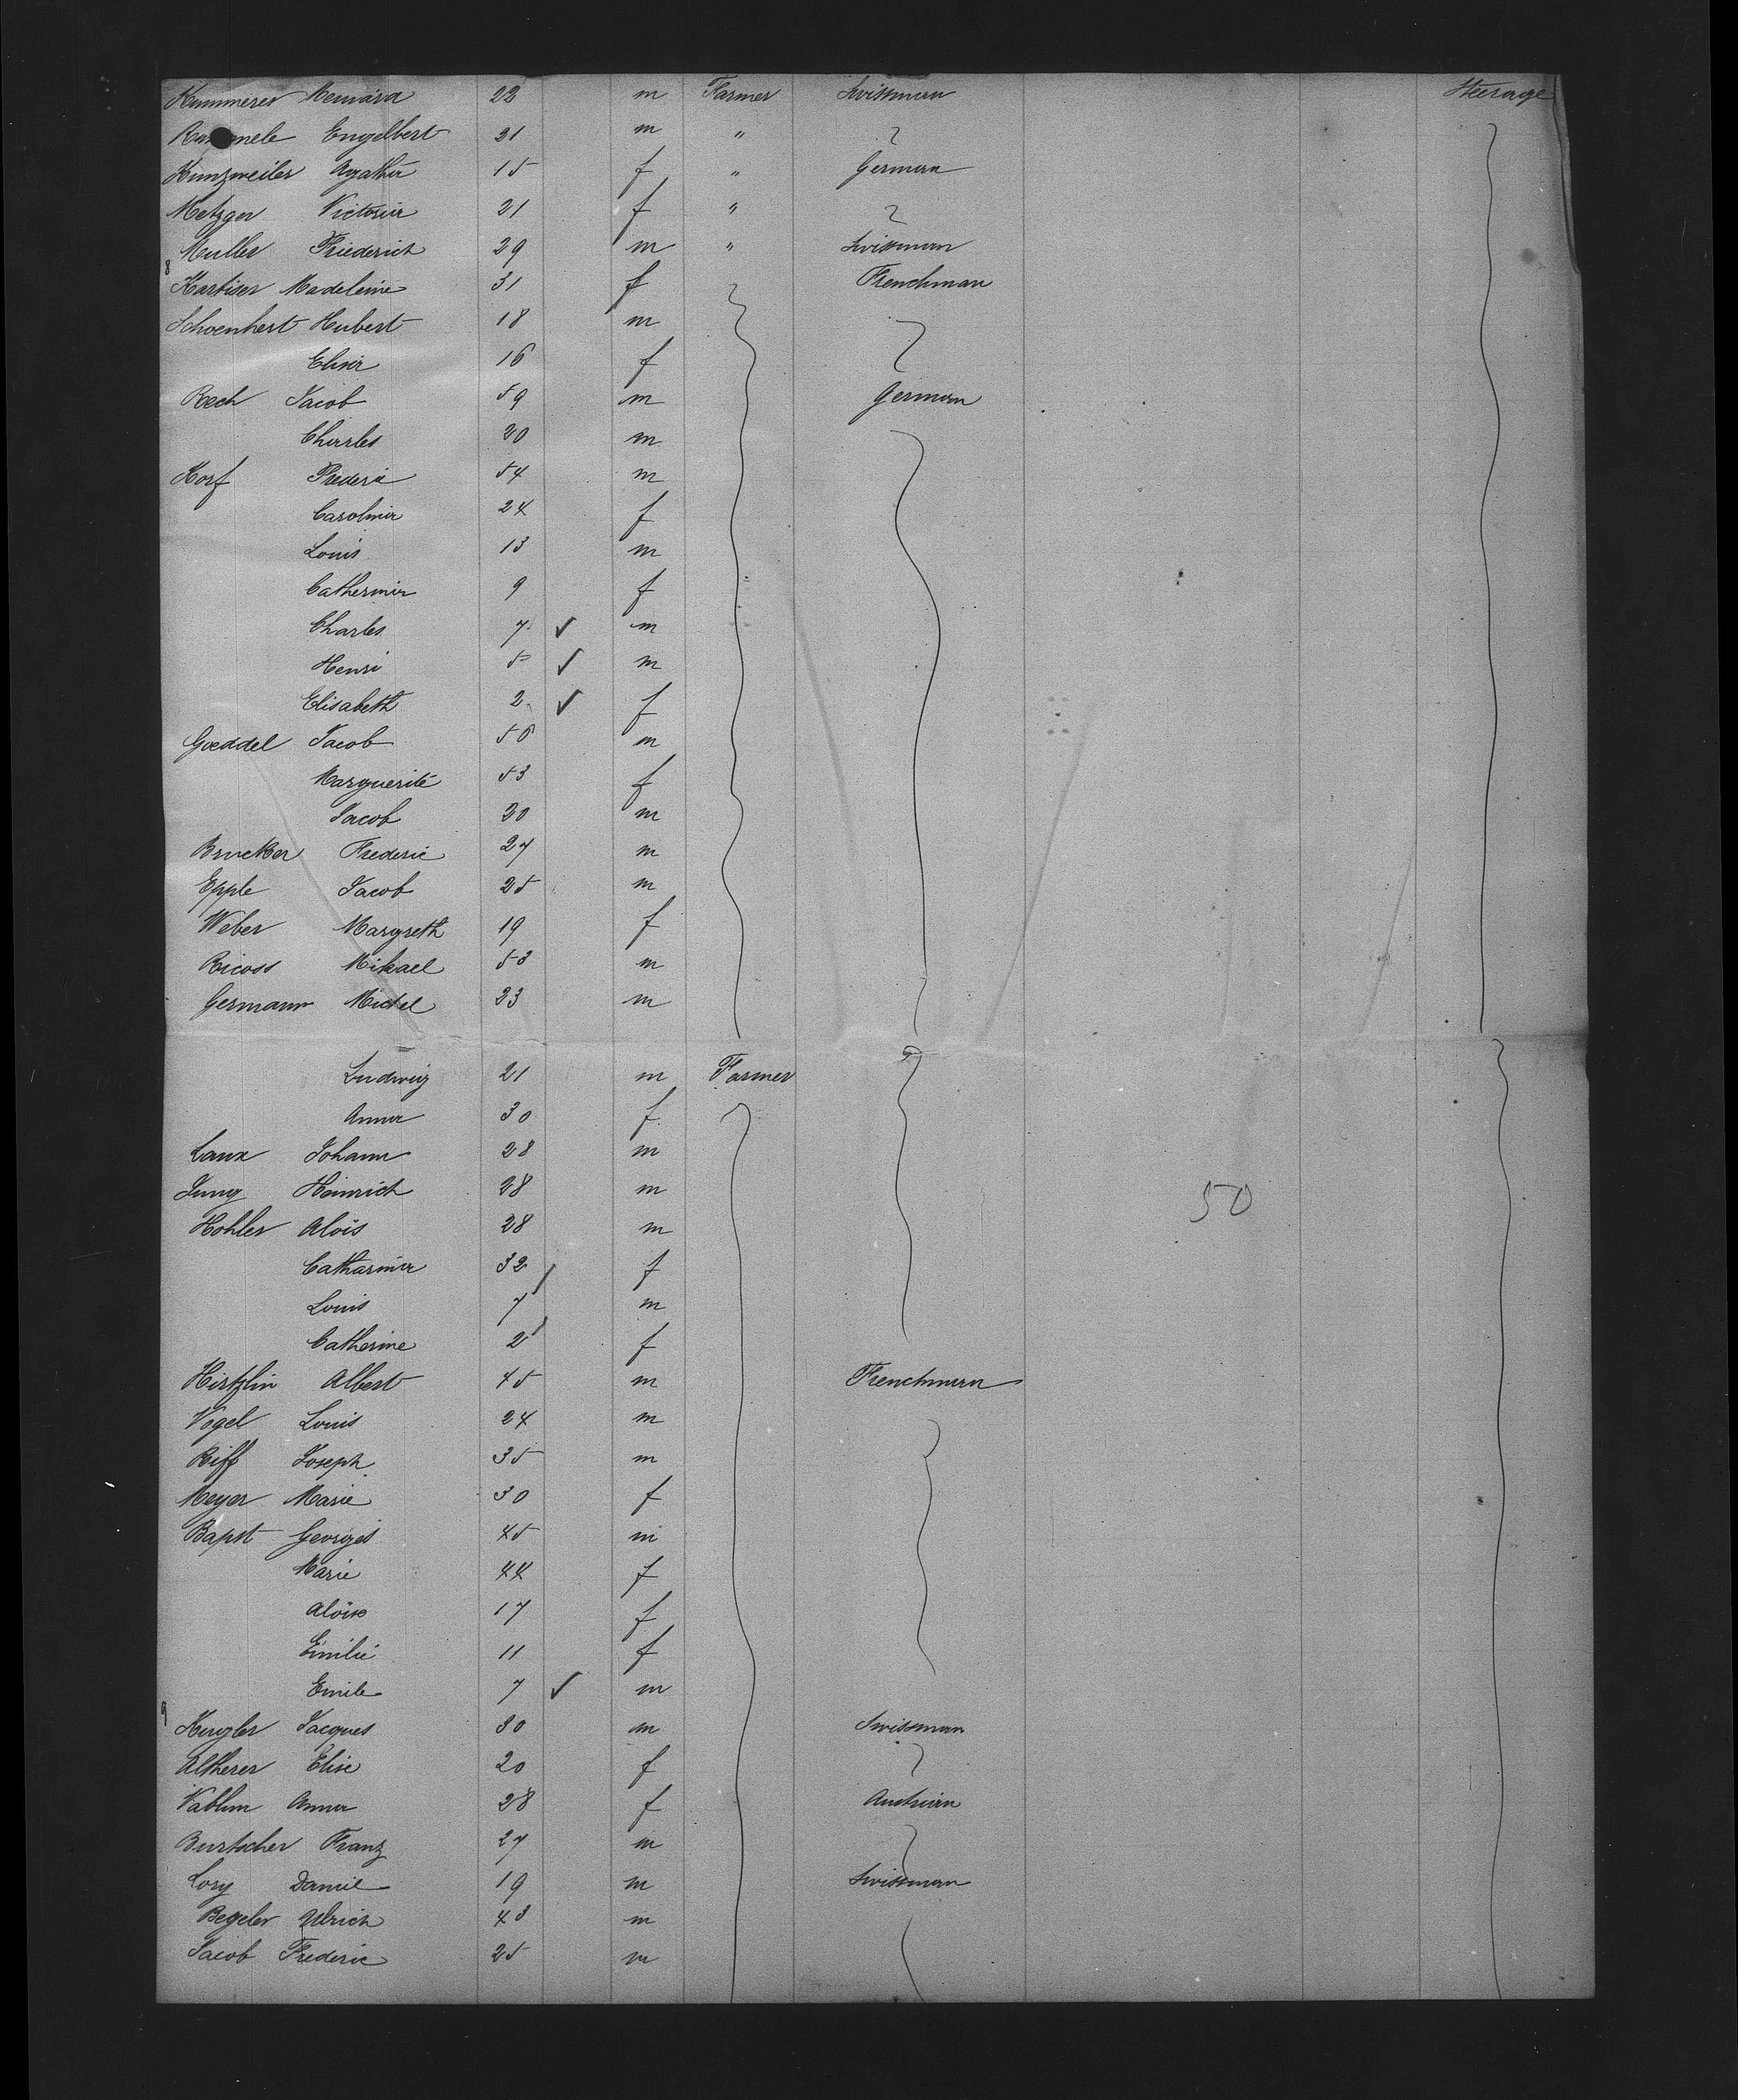 Kummerer Meinrad 22 m Farmer Swissman Steerage
Engelbert 21 m " 
Kunzweiler Agatha 15 f " German
Metzger Victoria 21 f "
Muller Friederich 29 m " Swissman
8
Kartiser Madeleine 31 f Frenchman
Schoenhert Hubert 18 m
Elisa 16 f
Rech Jacob 59 m German
Charles 20 m
Korf Frederic 54 m
Carolina 24 f
Louis 13 m
Catherina 9 f
Charles 7 ✓ m
Henri 5 ✓ m
Elisabeth 2 ✓ f
Goeddel Jacob 56 m
Marguerite 53 f
Jacob 20 m
Brucker Frederic 27 m
Epple Jacob 25 m
Weber Margreth 19 f
Ricoss Mikael 53 m
Germann Michel 23 m
Ludwig 21 m Farmer
Anna 30 f
Laux Johann 28 m
Jung Heinrich 28 m 50
Hohler Alois 28 m
Catharina 32 f
Louis 7 m
Catherine 2 f
Hirtzlin Albert 45 m Frenchman
Vogel Louis 24 m
Riff Joseph 35 m
Meyer Marie 30 f
Bapst Georges 45 m
Marie 44 f
Aloise 17 f
Emilie 11 f
Emile 7 ✓ m
9
Kugler Jacques 30 m Swissman
Altherer Elise 20 f
Vablun Anna 28 f Austrian
Burtscher Franz 27 m
Lory Daniel 19 m Swissman
Begeler Ulrich 43 m
Jacob Frederic 25 m